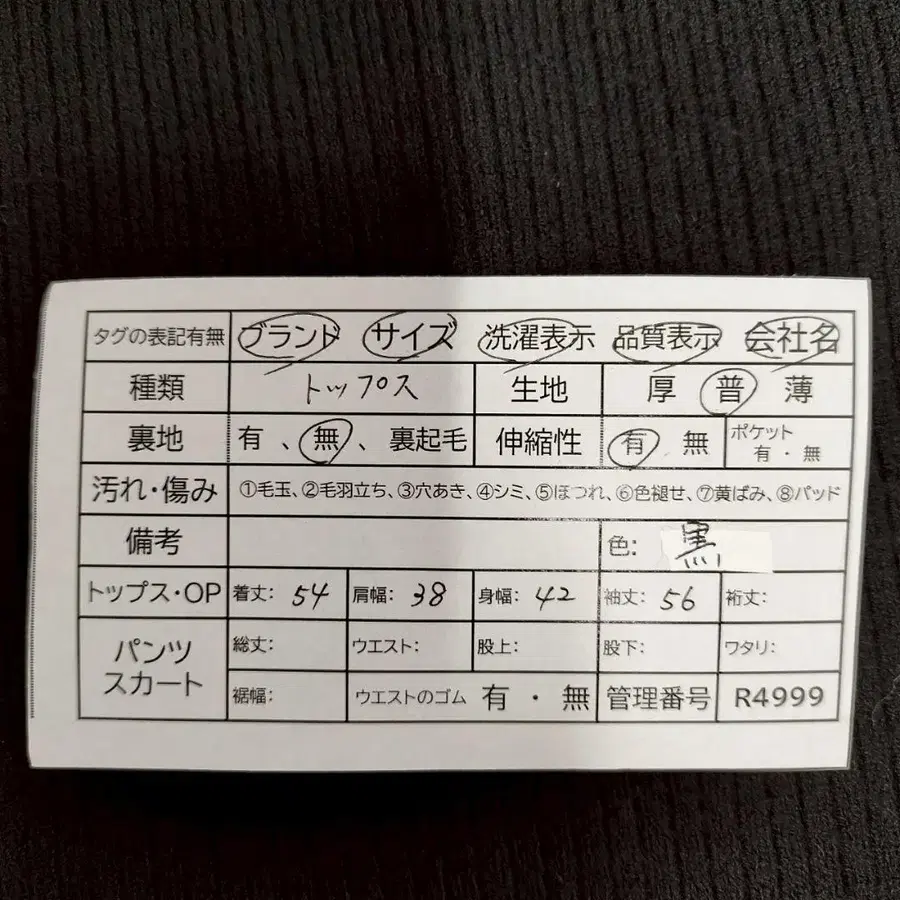 タグの表記有無 ブランド サイズ 洗濯表示 品質表示 会社名
種類 トップス 生地 厚 普 薄
裏地 有、無、裏起毛 伸縮性 有 無 ポケット 有・無
汚れ・傷み ①毛玉、②毛羽立ち、③穴あき、④シミ、⑤ほつれ、⑥色褪せ、⑦黄ばみ、⑧パッド
備考 色: 黒
トップス・OP 着丈: 54 肩幅: 38 身幅: 42 袖丈: 56 裄丈:
パンツ スカート 総丈: ウエスト: 股上: 股下: ワタリ:
裾幅: ウエストのゴム 有・無 管理番号 R4999